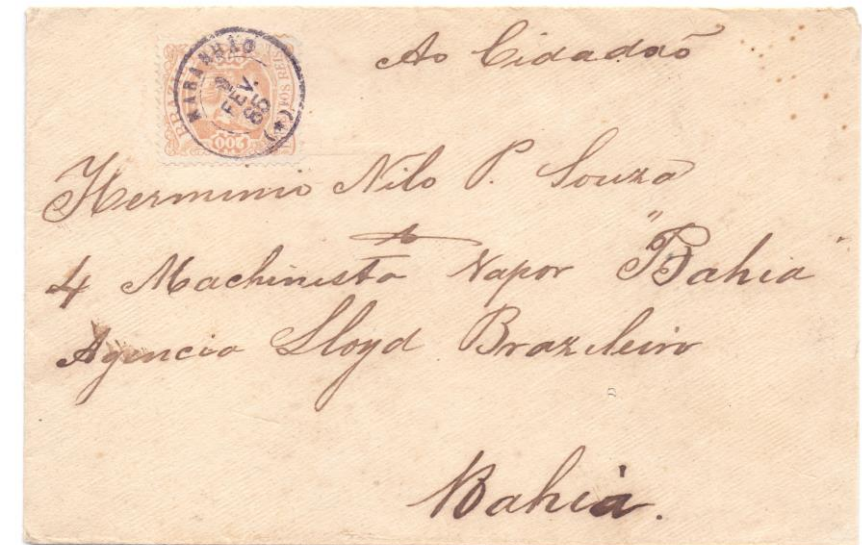 MARANHÃO
FEV.
(*)
200
Ao Cidadaõ
Herminio Nilo P. Souza
4 Machinista Vapor "Bahia"
Agencia Lloyd Brazileiro
Bahia.